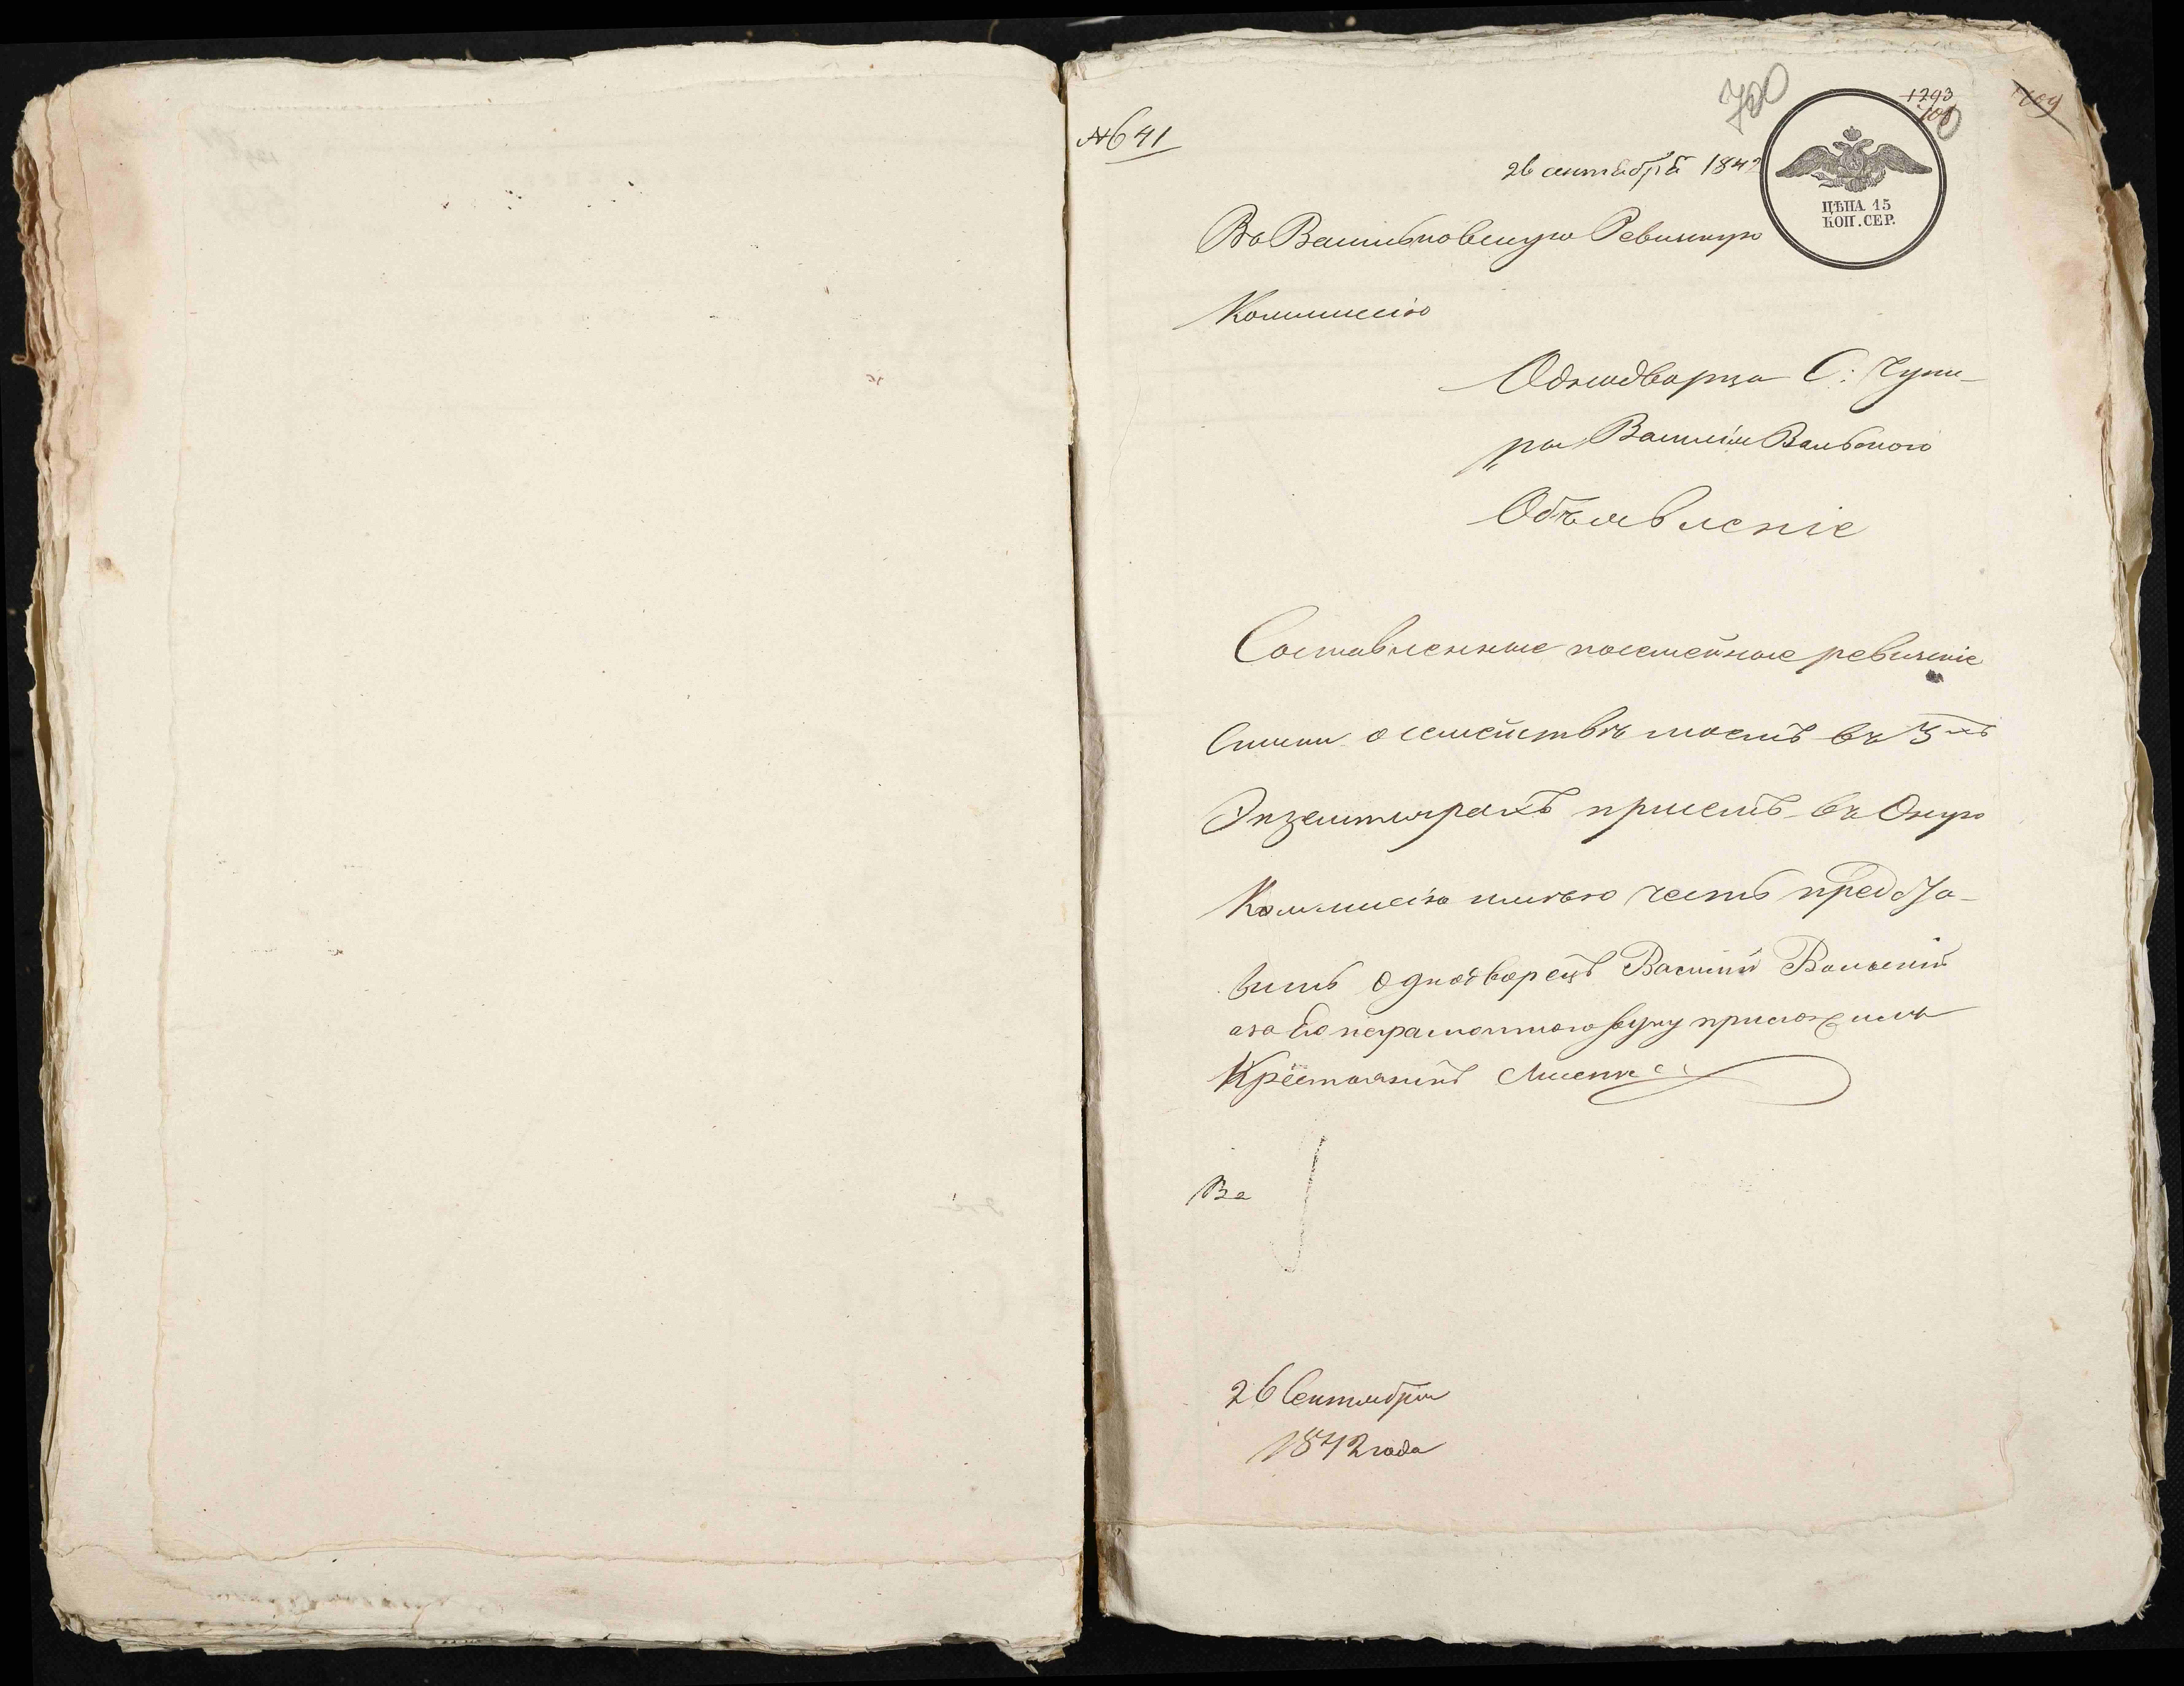 № 41
700
1293
26 сентября 1842
ЦѢНА 15
КОП. СЕР.
Въ Васильковскую Ревизскую
Коммисію
Однодворца С: Чупи-
ры Василія Вальского
Объявленіе
Составленные посемейные ревизскіе
Сказки о семействѣ моемъ въ 3хъ
Экземплярахъ присемъ въ Оную
Коммисію имѣю честь предста-
вить однодворецъ Василій Вальскій
а за Его неграмотного руку приложилъ
Крестьянинъ
Ва
26 Сентября
1842 года